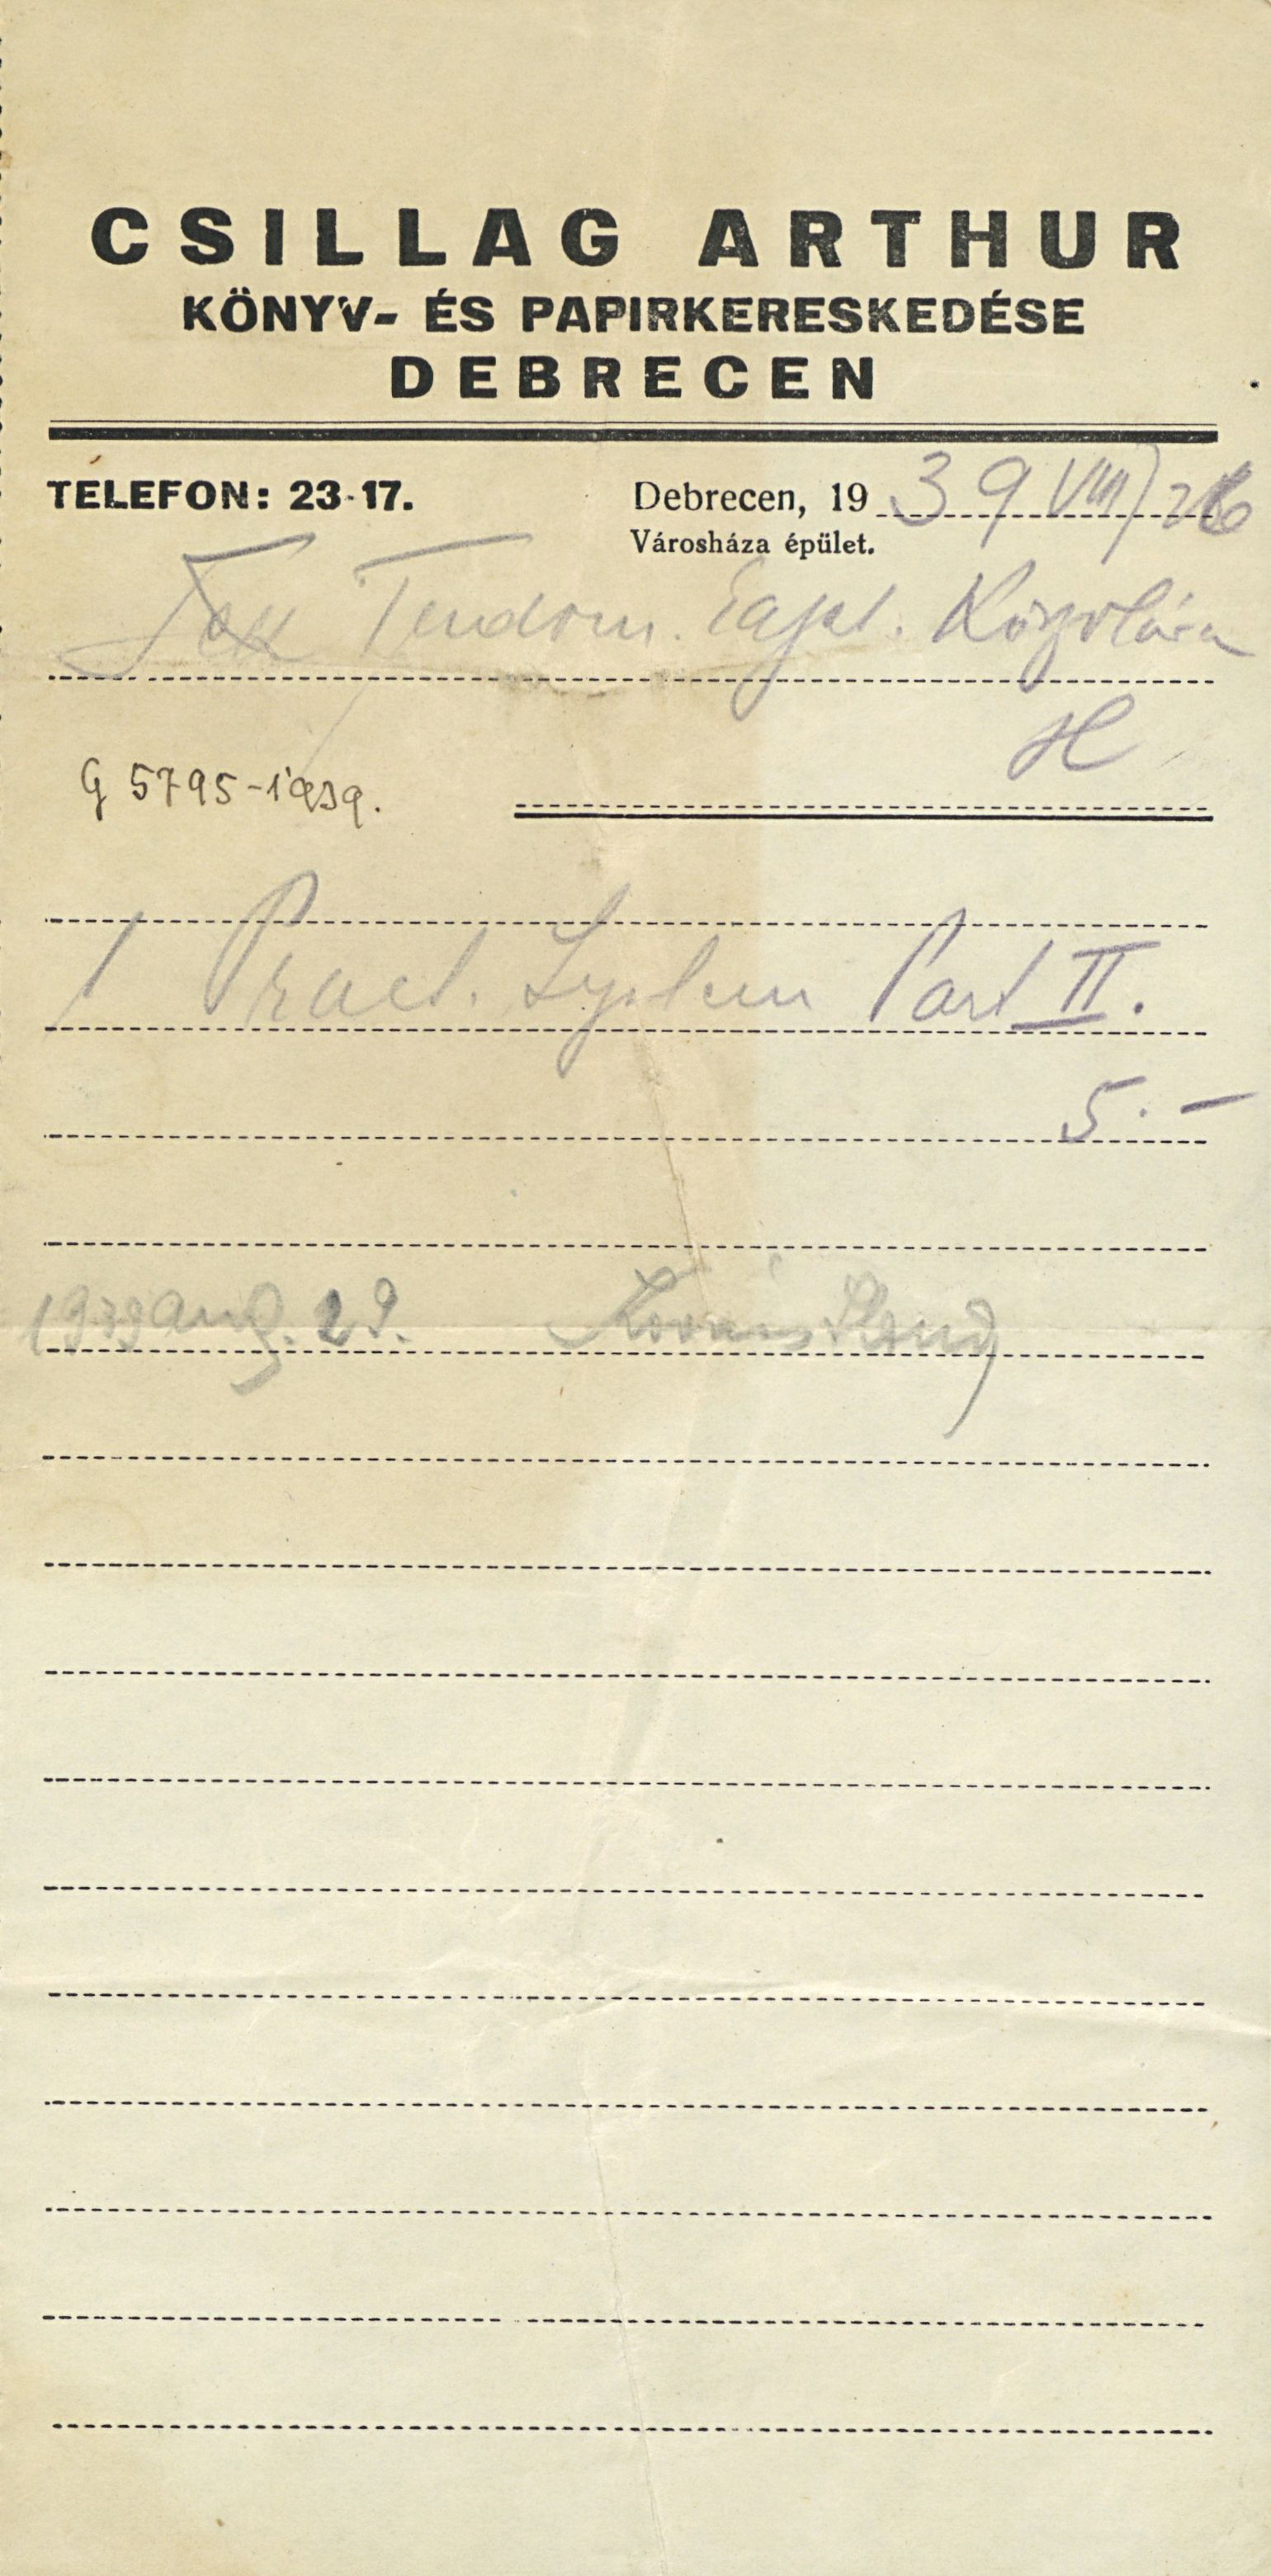 CSILLAG ARTHUR
KÖNYV- ÉS PAPIRKERESKEDÉSE
DEBRECEN
TELEFON: 23-17.
Debrecen, 1939 VIII/26
Városháza épület.
Tek Tudom. Egyet.
H
G 5795-1939.
1 Pract. System Part II.
5.—
1939 aug. 29.